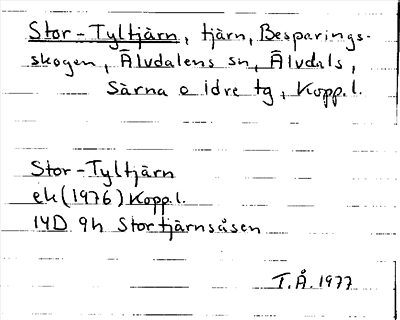 Stor-Tyltjärn, tjärn, Besparings-
skogen, Älvdalens sn, Älvdals,
Särna o Idre tg, Kopp.l.
Stor-Tyltjärn
ek (1976) Kopp.l.
14D 9h Stortjärnsåsen
T.Å. 1977